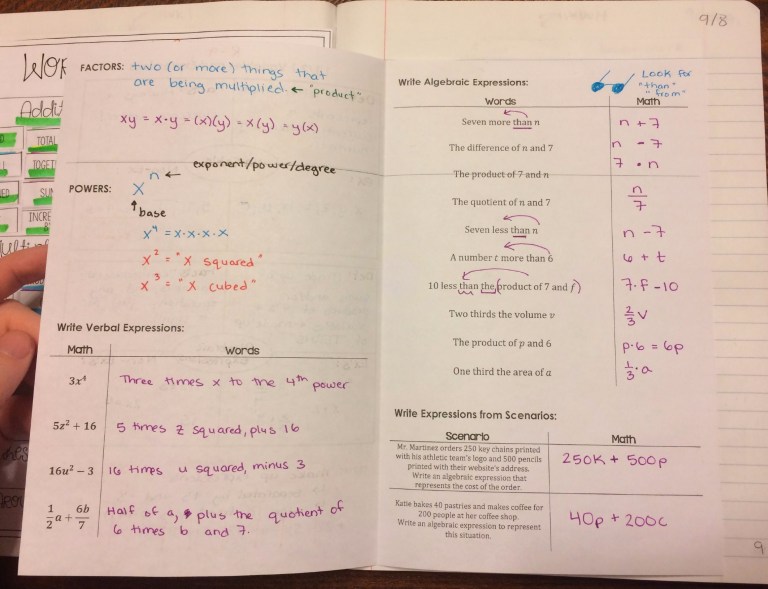 9/8
WOR
Addit
TOTAL
TOGET
SUM
INCRE
FACTORS: two (or more) things that
are being multiplied. ← "product"
xy = x·y = (x)(y) = x(y) = y(x)
POWERS:
xⁿ ← exponent/power/degree
↑ base
x⁴ = x·x·x·x
x² = "x squared"
x³ = "x cubed"
Write Verbal Expressions:
Math Words
3x⁴ Three times x to the 4th power
5z² + 16 5 times z squared, plus 16
16u² − 3 16 times u squared, minus 3
1/2 a + 6b/7 Half of a, plus the quotient of
6 times b and 7.
Write Algebraic Expressions:
Look for
"than"
"from"
Words Math
Seven more than n n + 7
The difference of n and 7 n - 7
The product of 7 and n 7 · n
The quotient of n and 7 n/7
Seven less than n n - 7
A number t more than 6 6 + t
10 less than the (product of 7 and f) 7·f - 10
Two thirds the volume v 2/3 v
The product of p and 6 p·6 = 6p
One third the area of a 1/3 · a
Write Expressions from Scenarios:
Scenario Math
Mr. Martinez orders 250 key chains printed
with his athletic team's logo and 500 pencils
printed with their website's address.
Write an algebraic expression that
represents the cost of the order.
250k + 500p
Katie bakes 40 pastries and makes coffee for
200 people at her coffee shop.
Write an algebraic expression to represent
this situation.
40p + 200c
9